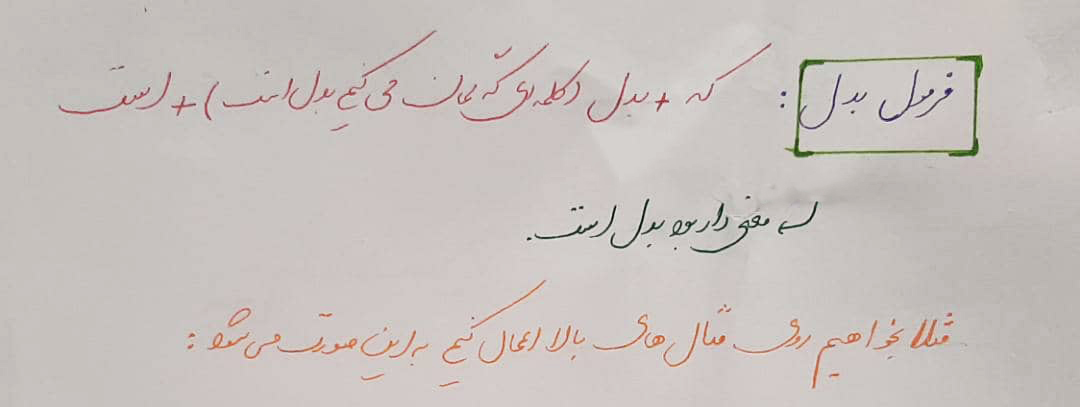 فرمول بدل : که + بدل (کلمه ای که گمان می کنیم بدل است) + است
معنی دار بود بدل است.
مثلا بخواهیم روی مثال های بالا اعمال کنیم به این صورت می شود :